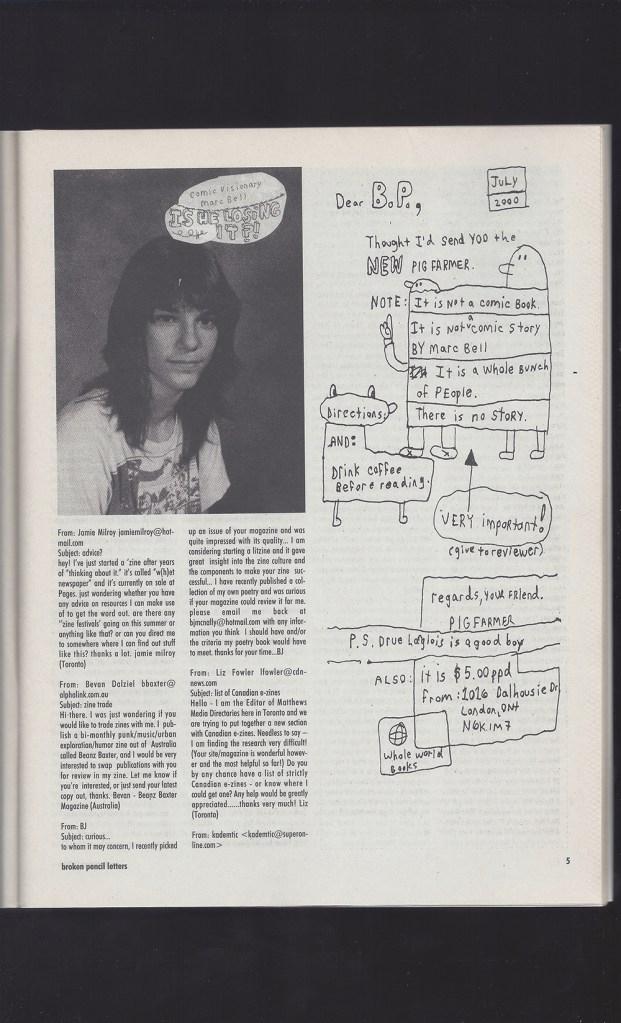 Comic Visionary
Marc Bell
IS HE LOSING
IT?!
Dear B.P.,
JULY
2000
Thought I'd send YOU the
NEW PIG FARMER.
NOTE: It is Not a comic Book.
It is Not a comic Story
BY Marc Bell
It is a Whole Bunch
of People.
There is no STORY.
Directions:
AND:
Drink coffee
Before reading.
VERY important!
(give to reviewer)
regards, YOUR Friend.
PIGFARMER
P.S. Drue Langlois is a good boy
ALSO: it is $5.00ppd
From: 1026 Dalhousie Dr
London, ONT
N6K.1M7
Whole World
Books
From: Jamie Milroy jamiemilroy@hot-
mail.com
Subject: advice?
hey! I've just started a 'zine after years
of "thinking about it." it's called "w(h)et
newspaper" and it's currently on sale at
Pages. just wondering whether you
have any advice on resources I can make
use of to get the word out. are there any
"zine festivals' going on this summer or
anything like that? or can you direct me
to somewhere where I can find out stuff
like this? thanks a lot. jamie milroy
(Toronto)
From: Bevan Dalziel bbaxter@
alphalink.com.au
Subject: zine trade
Hi there. I was just wondering if you
would like to trade zines with me. I pub-
lish a bi-monthly punk/music/urban
exploration/humor zine out of Australia
called Beanz Baxter, and I would be very
interested to swap publications with you
for review in my zine. Let me know if
you're interested, or just send your latest
copy out, thanks. Bevan - Beanz Baxter
Magazine (Australia)
From: BJ
Subject: curious...
to whom it may concern, I recently picked
up an issue of your magazine and was
quite impressed with its quality... I am
considering starting a litzine and it gave
great insight into the zine culture and
the components to make your zine suc-
cessful... I have recently published a col-
lection of my own poetry and was curious
if your magazine could review it for me.
please email me back at
bjmcnally@hotmail.com with any infor-
mation you think I should have and/or
the criteria my poetry book would have
to meet. thanks for your time...BJ
From: Liz Fowler lfowler@cdn-
news.com
Subject: list of Canadian e-zines
Hello - I am the Editor of Matthews
Media Directories here in Toronto and we
are trying to put together a new section
with Canadian e-zines. Needless to say –
I am finding the research very difficult!
(Your site/magazine is wonderful howev-
er and the most helpful so far!) Do you
by any chance have a list of strictly
Canadian e-zines - or know where I
could get one? Any help would be greatly
appreciated......thanks very much! Liz
(Toronto)
From: kademtic <kademtic@superon-
line.com>
broken pencil letters
5